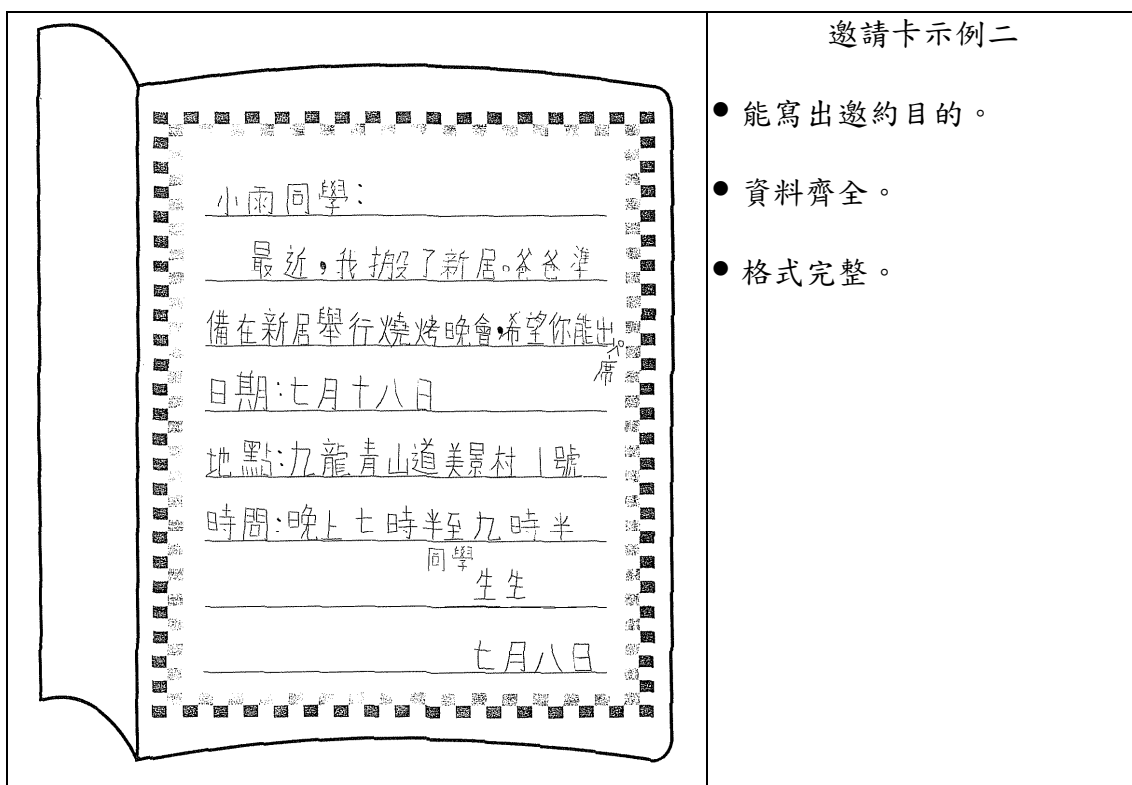 小雨同學：
最近，我搬了新居。爸爸準
備在新居舉行燒烤晚會，希望你能出
席。
日期：七月十八日
地點：九龍青山道美景村1號
時間：晚上七時半至九時半
同學
生生
七月八日
邀請卡示例二
● 能寫出邀約目的。
● 資料齊全。
● 格式完整。